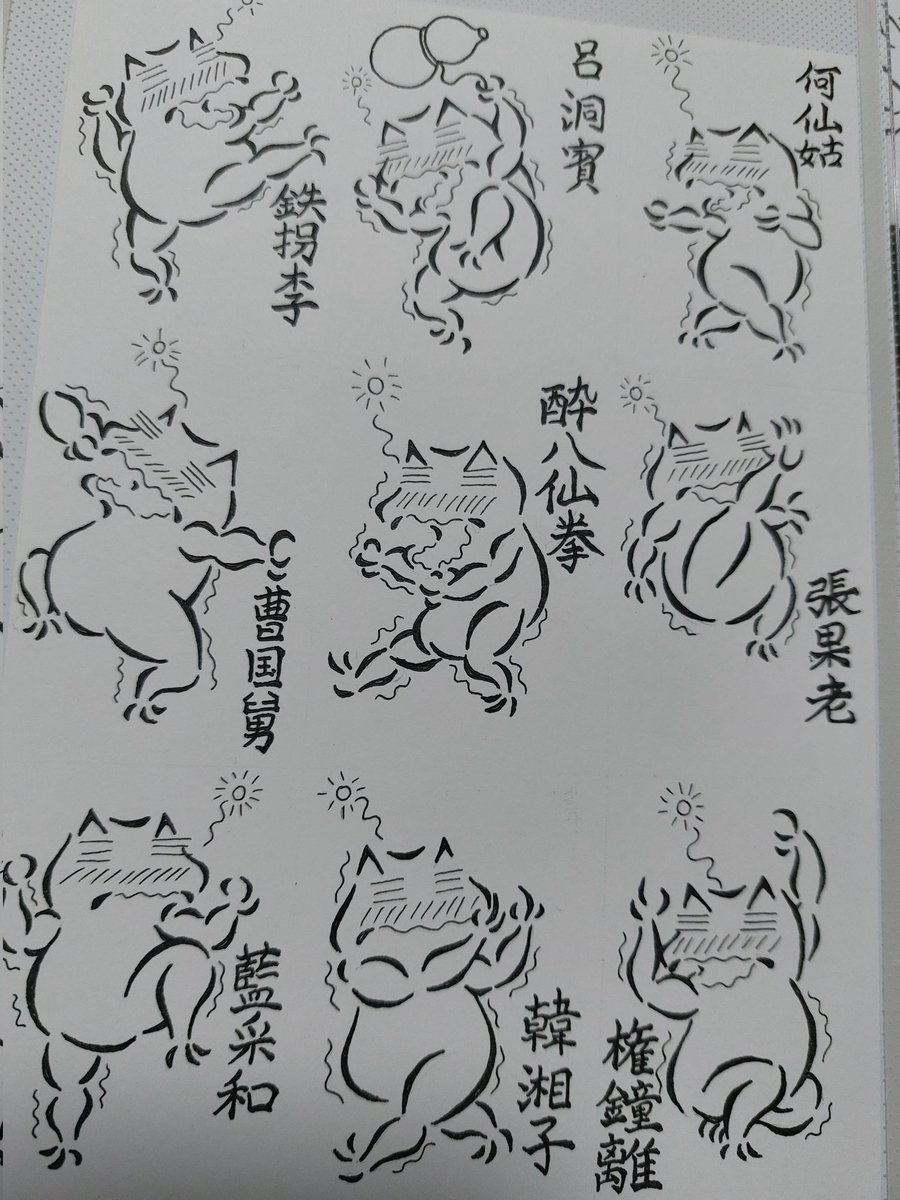 何仙姑
呂洞賓
鉄拐李
張果老
酔八仙拳
曹国舅
権鐘離
韓湘子
藍采和